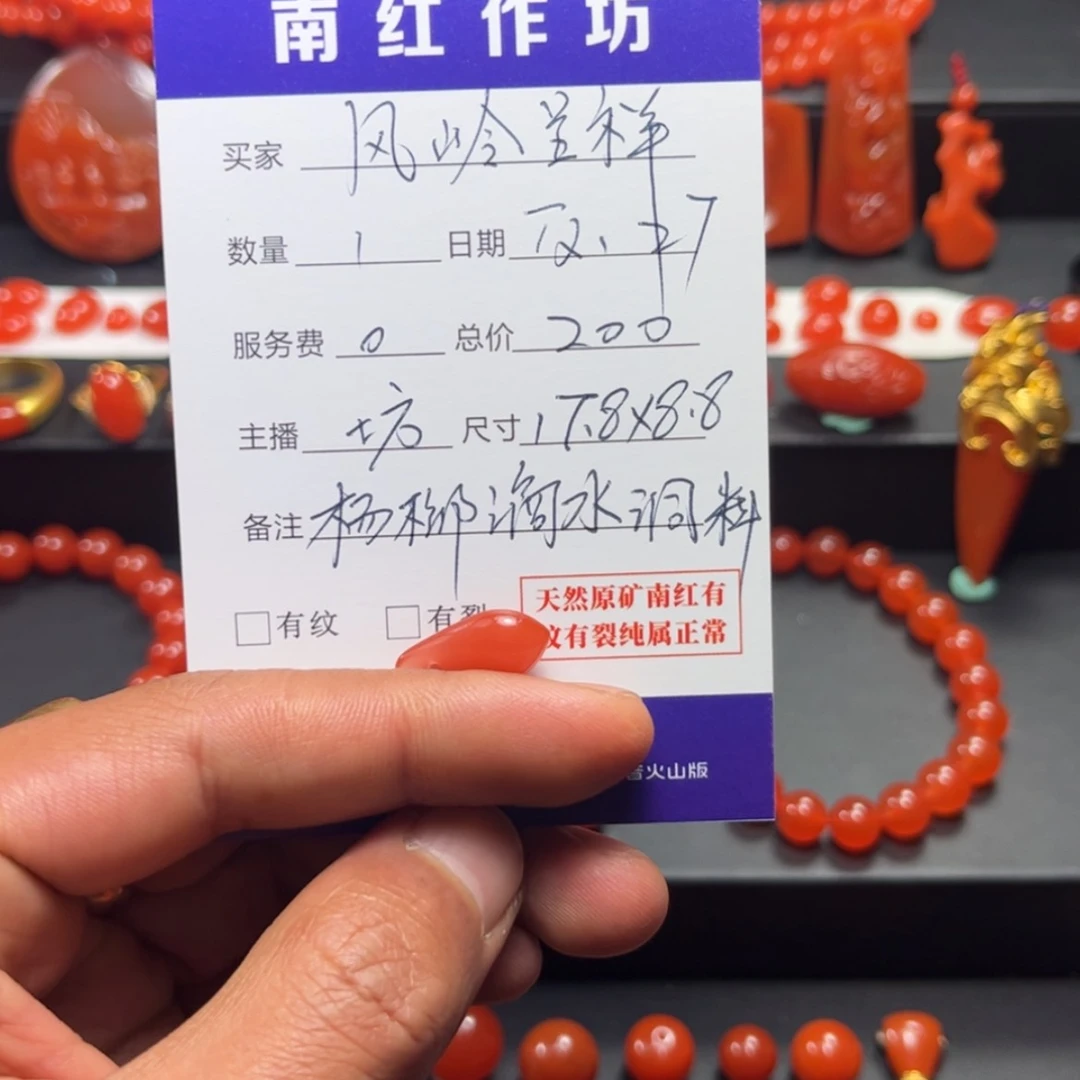 南红作坊
买家 风岭呈祥
数量 1 日期 12.27
服务费 0 总价 200
主播 坊 尺寸 17.8x8.8
备注 杨柳滴水洞料
有纹 有裂
天然原矿南红有
纹有裂纯属正常
火山版